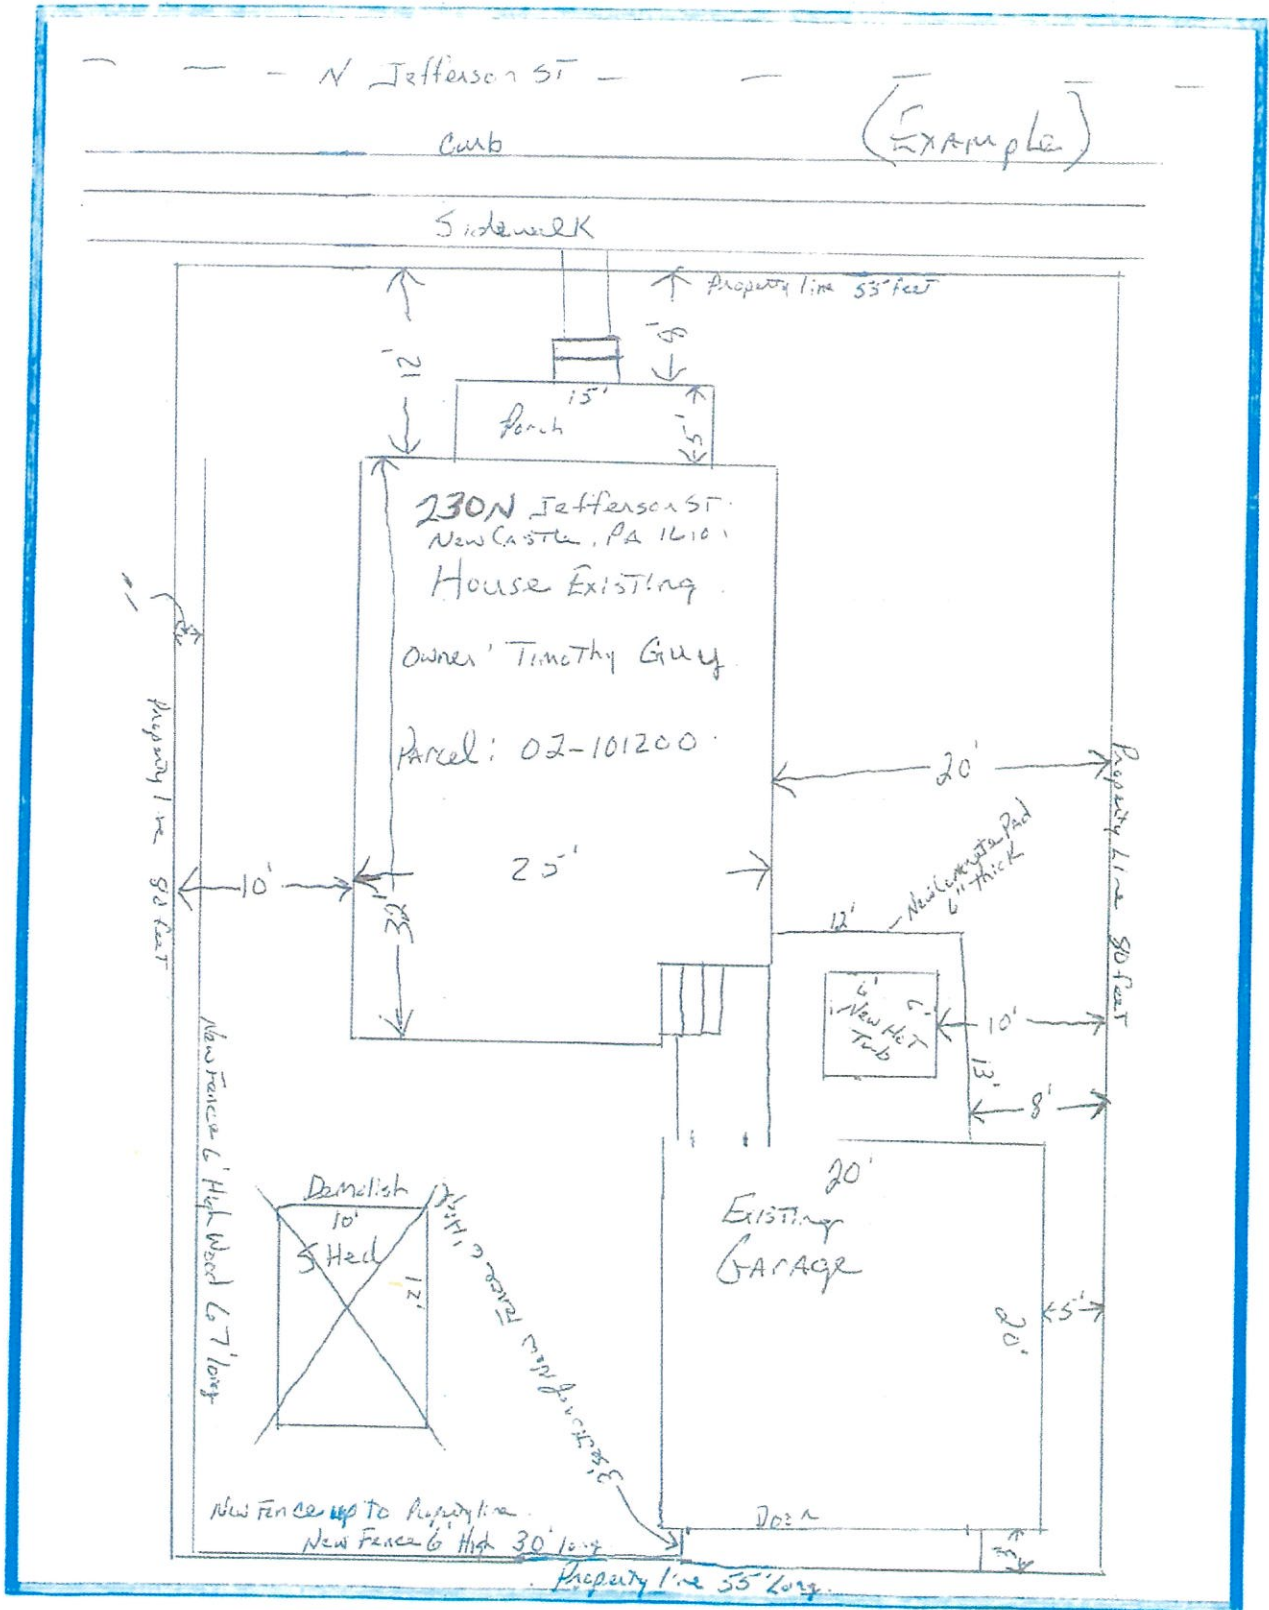 N Jefferson ST
(Example)
Curb
Sidewalk
Property line 55 feet
8'
15'
Porch
5'
230N Jefferson ST.
New Castle, PA 16101
House Existing
Owner: Timothy Guy
Parcel: 02-101200
20'
25'
10'
Property line 80 feet
Property Line 80 feet
New Concrete Pad
6" thick
12'
6'
6'
New Hot
Tub
10'
13'
8'
New Fence 6' High Wood 67' long
Demolish
10'
SHed
12'
3' section of New Fence 6' High
20'
Existing
GARAGE
20'
5'
Door
3'
New Fence up to Property line
New Fence 6' High 30' long
Property line 55' Long.